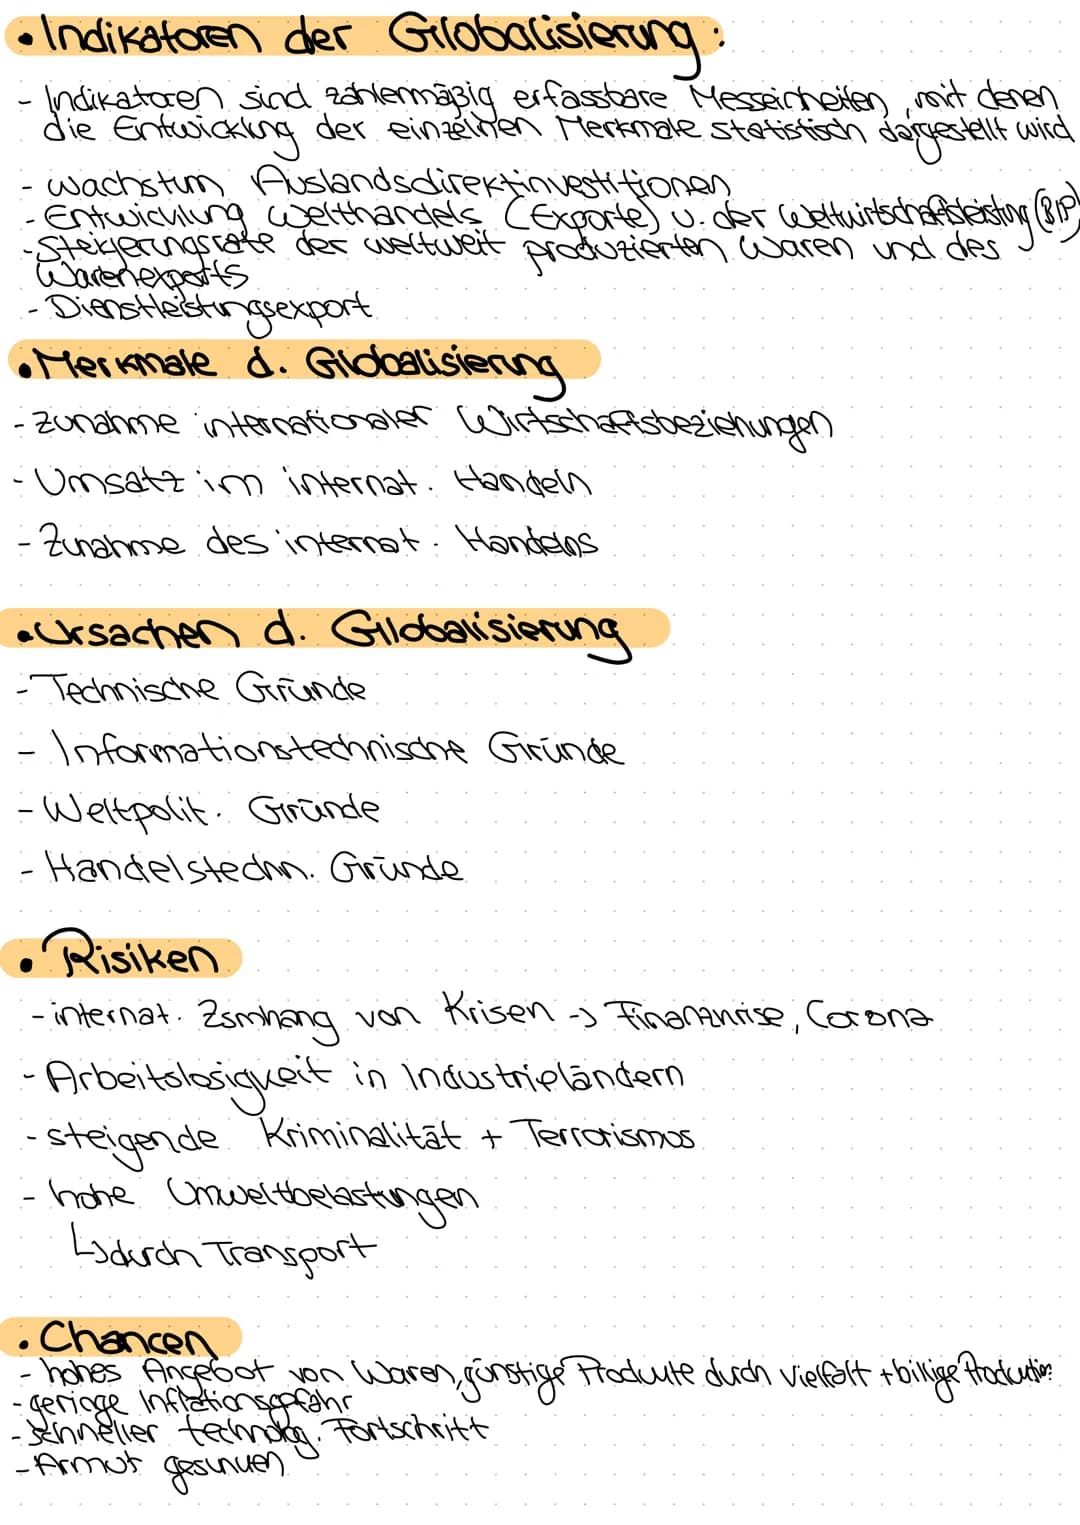 • Indikatoren der Globalisierung:
- Indikatoren sind zahlenmäßig erfassbare Messeinheiten, mit denen
die Entwicklung der einzelnen Merkmale statistisch dargestellt wird
- Wachstum Auslandsdirektinvestitionen
- Entwicklung Welthandels (Exporte) u. der Weltwirtschaftsleistung (BIP)
- Steigerungsrate der weltweit produzierten Waren und des
Warenexports
- Dienstleistungsexport
• Merkmale d. Globalisierung
- Zunahme internationaler Wirtschaftsbeziehungen
- Umsatz im internat. Handeln
- Zunahme des internat. Handelns
• Ursachen d. Globalisierung
- Technische Gründe
- Informationstechnische Gründe
- Weltpolit. Gründe
- Handelstechn. Gründe
• Risiken
- internat. Zsmhang von Krisen -> Finanzkrise, Corona
- Arbeitslosigkeit in Industrieländern
- steigende Kriminalität + Terrorismus
- hohe Umweltbelastungen
↳ durch Transport
• Chancen
- hohes Angebot von Waren, günstige Produkte durch Vielfalt + billige Produktion
- geringe Inflationsgefahr
- schneller technolog. Fortschritt
- Armut gesunken